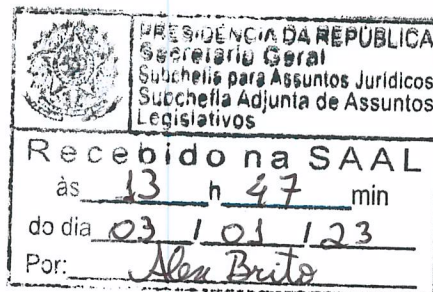 PRESIDÊNCIA DA REPÚBLICA
Secretaria Geral
Subchefia para Assuntos Jurídicos
Subchefia Adjunta de Assuntos
Legislativos
Recebido na SAAL
às 13 h 47 min
do dia 03 / 01 / 23
Por: Alex Brito